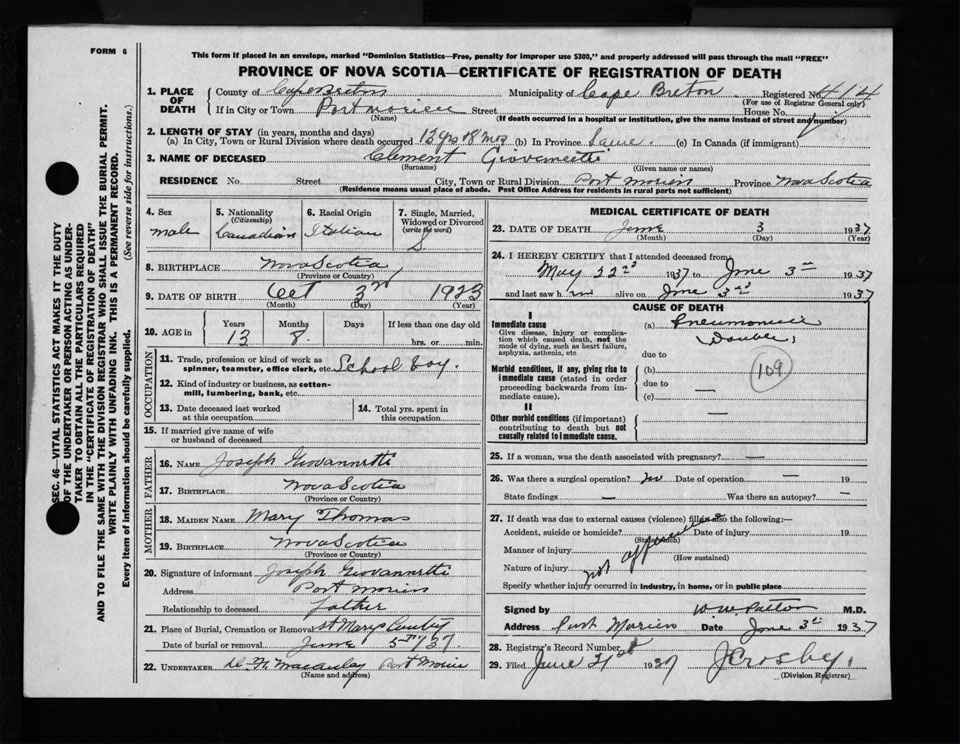 FORM 6
This form if placed in an envelope, marked "Dominion Statistics—Free, penalty for improper use $300," and properly addressed will pass through the mail "FREE"
PROVINCE OF NOVA SCOTIA—CERTIFICATE OF REGISTRATION OF DEATH
1. PLACE OF DEATH County of Cape Breton Municipality of Cape Breton Registered No. 414
(For use of Registrar General only)
If in City or Town Port Morien Street House No.
(Name) (If death occurred in a hospital or institution, give the name instead of street and number)
2. LENGTH OF STAY (in years, months and days)
(a) In City, Town or Rural Division where death occurred 13 yrs 8 mos (b) In Province Same. (c) In Canada (if immigrant)
3. NAME OF DECEASED Clement
(Surname) (Given name or names)
RESIDENCE No. Street City, Town or Rural Division Port Morien Province Nova Scotia
(Residence means usual place of abode. Post Office Address for residents in rural parts not sufficient)
4. Sex male
5. Nationality (Citizenship) Canadian
6. Racial Origin Italian
7. Single, Married, Widowed or Divorced (write the word) S
8. BIRTHPLACE Nova Scotia
(Province or Country)
9. DATE OF BIRTH Oct 3rd 1923
(Month) (Day) (Year)
10. AGE in Years Months Days If less than one day old
13 8 hrs. or min.
OCCUPATION
11. Trade, profession or kind of work as spinner, teamster, office clerk, etc. School boy.
12. Kind of industry or business, as cotton-mill, lumbering, bank, etc.
13. Date deceased last worked at this occupation
14. Total yrs. spent in this occupation
15. If married give name of wife or husband of deceased
FATHER
16. NAME Joseph Giovannetti
17. BIRTHPLACE Nova Scotia
(Province or Country)
MOTHER
18. MAIDEN NAME Mary Thomas
19. BIRTHPLACE Nova Scotia
(Province or Country)
20. Signature of informant Joseph Giovannetti
Address Port Morien
Relationship to deceased father
21. Place of Burial, Cremation or Removal St Marys
Date of burial or removal June 5th/37.
22. UNDERTAKER Port Morien
(Name and address)
MEDICAL CERTIFICATE OF DEATH
23. DATE OF DEATH June 3 1937
(Month) (Day) (Year)
24. I HEREBY CERTIFY that I attended deceased from
May 22nd 1937 to June 3rd 1937
and last saw him alive on June 3rd 1937
CAUSE OF DEATH
I
Immediate cause
Give disease, injury or complication which caused death, not the mode of dying, such as heart failure, asphyxia, asthenia, etc
(a) Pneumonia
(Double)
due to
Morbid conditions, if any, giving rise to immediate cause (stated in order proceeding backwards from immediate cause).
(b)
due to —
(c)
109
II
Other morbid conditions (if important) contributing to death but not causally related to immediate cause.
—
25. If a woman, was the death associated with pregnancy? —
26. Was there a surgical operation? no Date of operation — 19
State findings — Was there an autopsy? —
27. If death was due to external causes (violence) fill in also the following:—
Accident, suicide or homicide? Date of injury 19
(State which)
Manner of injury
(How sustained)
Nature of injury
Specify whether injury occurred in industry, in home, or in public place
Signed by W.W. Patton M.D.
Address Port Morien Date June 3rd 1937
28. Registrar's Record Number
29. Filed June 21st 1937 J Crosby.
(Division Registrar)
SEC. 46—VITAL STATISTICS ACT MAKES IT THE DUTY
OF THE UNDERTAKER OR PERSON ACTING AS UNDER-
TAKER TO OBTAIN ALL THE PARTICULARS REQUIRED
IN THE "CERTIFICATE OF REGISTRATION OF DEATH"
AND TO FILE THE SAME WITH THE DIVISION REGISTRAR WHO SHALL ISSUE THE BURIAL PERMIT.
WRITE PLAINLY WITH UNFADING INK. THIS IS A PERMANENT RECORD.
Every item of information should be carefully supplied. (See reverse side for instructions.)